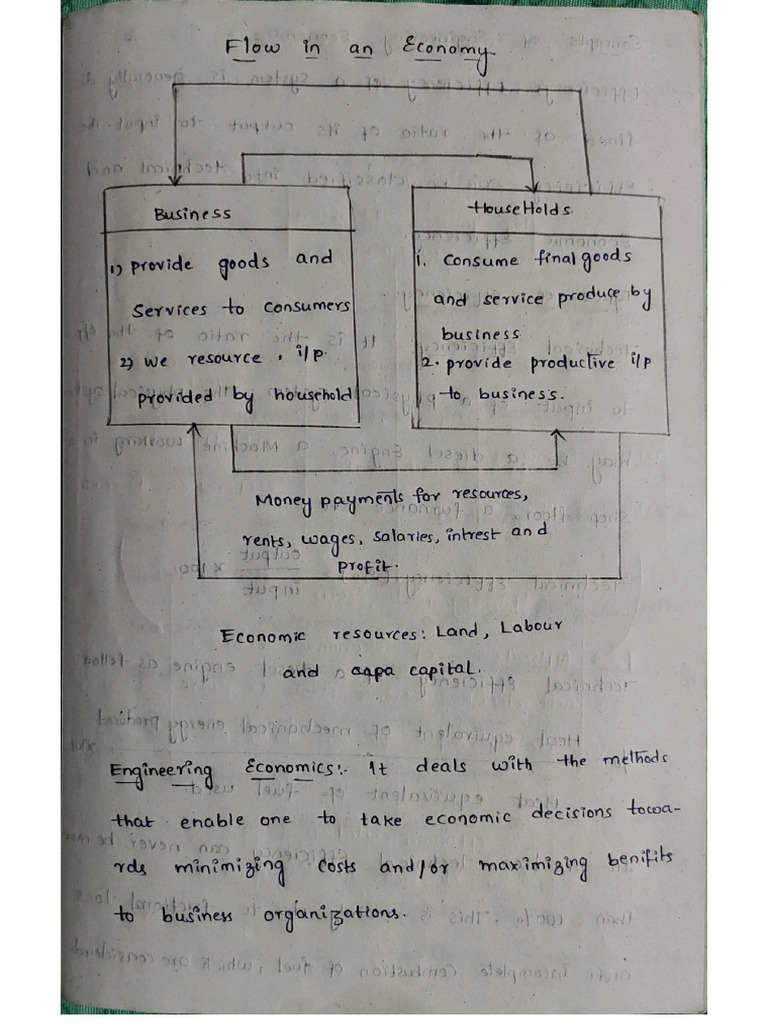 Flow in an Economy
Business
1) provide goods and
services to consumers
2) we resource, i/p.
provided by household
HouseHolds.
1. consume final goods
and service produce by
business
2. provide productive i/p
to business.
Money payments for resources,
rents, wages, salaries, intrest and
profit.
Economic resources: Land, Labour
and capital.
Engineering Economics:- it deals with the methods
that enable one to take economic decisions towa-
rds minimizing costs and/or maximizing benifits
to business organizations.